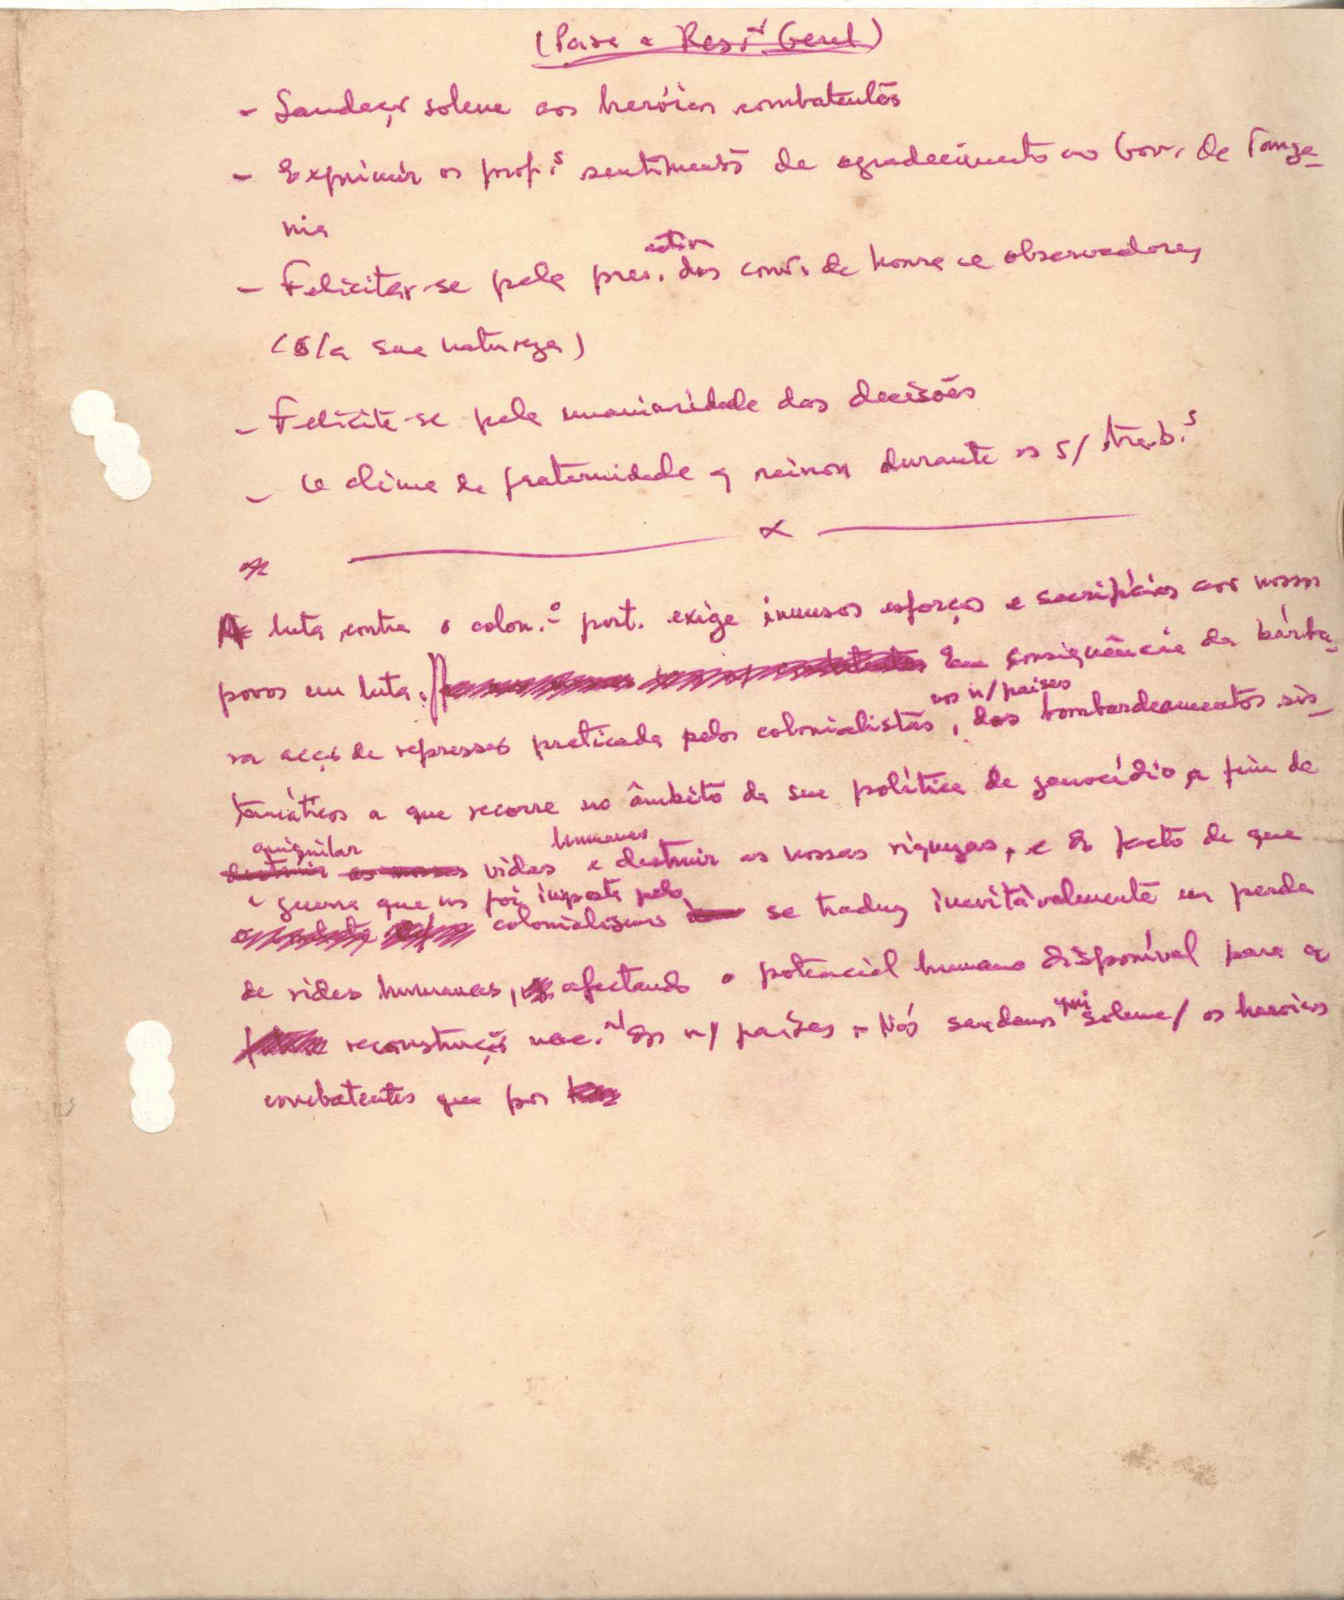 (Para a Res. Geral)
- Saudação solene aos heróicos combatentes
- Exprimir os prof.s sentimentos de agradecimento ao Gov. de Tanza-
nia
activa
- Felicitar-se pela pres. dos conv. de honra e observadores
(s/a sua natureza)
- Felicite-se pela unanimidade das decisões
- e clima de fraternidade q reinou durante os s/ trab.s
x
A luta contra o colon.o port. exige imensos esforços e sacrifícios aos nossos
povos em luta. Em consequência da bárba-
aos n/ países
ra acção de repressão praticada pelos colonialistas, dos bombardeamentos sis-
temáticos a que recorre no âmbito da sua política de genocídio a fim de
aniquilar humanas
destruir as nossas vidas e destruir as nossas riquezas, e do facto de que
a guerra que nos foi imposta pelo
colonialismo se traduz inevitàvelmente em perda
de vidas humanas, afectando o potencial humano disponível para a
reconstrução nac.al dos n/ países. Nós saudamos aqui solene/ os heróicos
combatentes que por